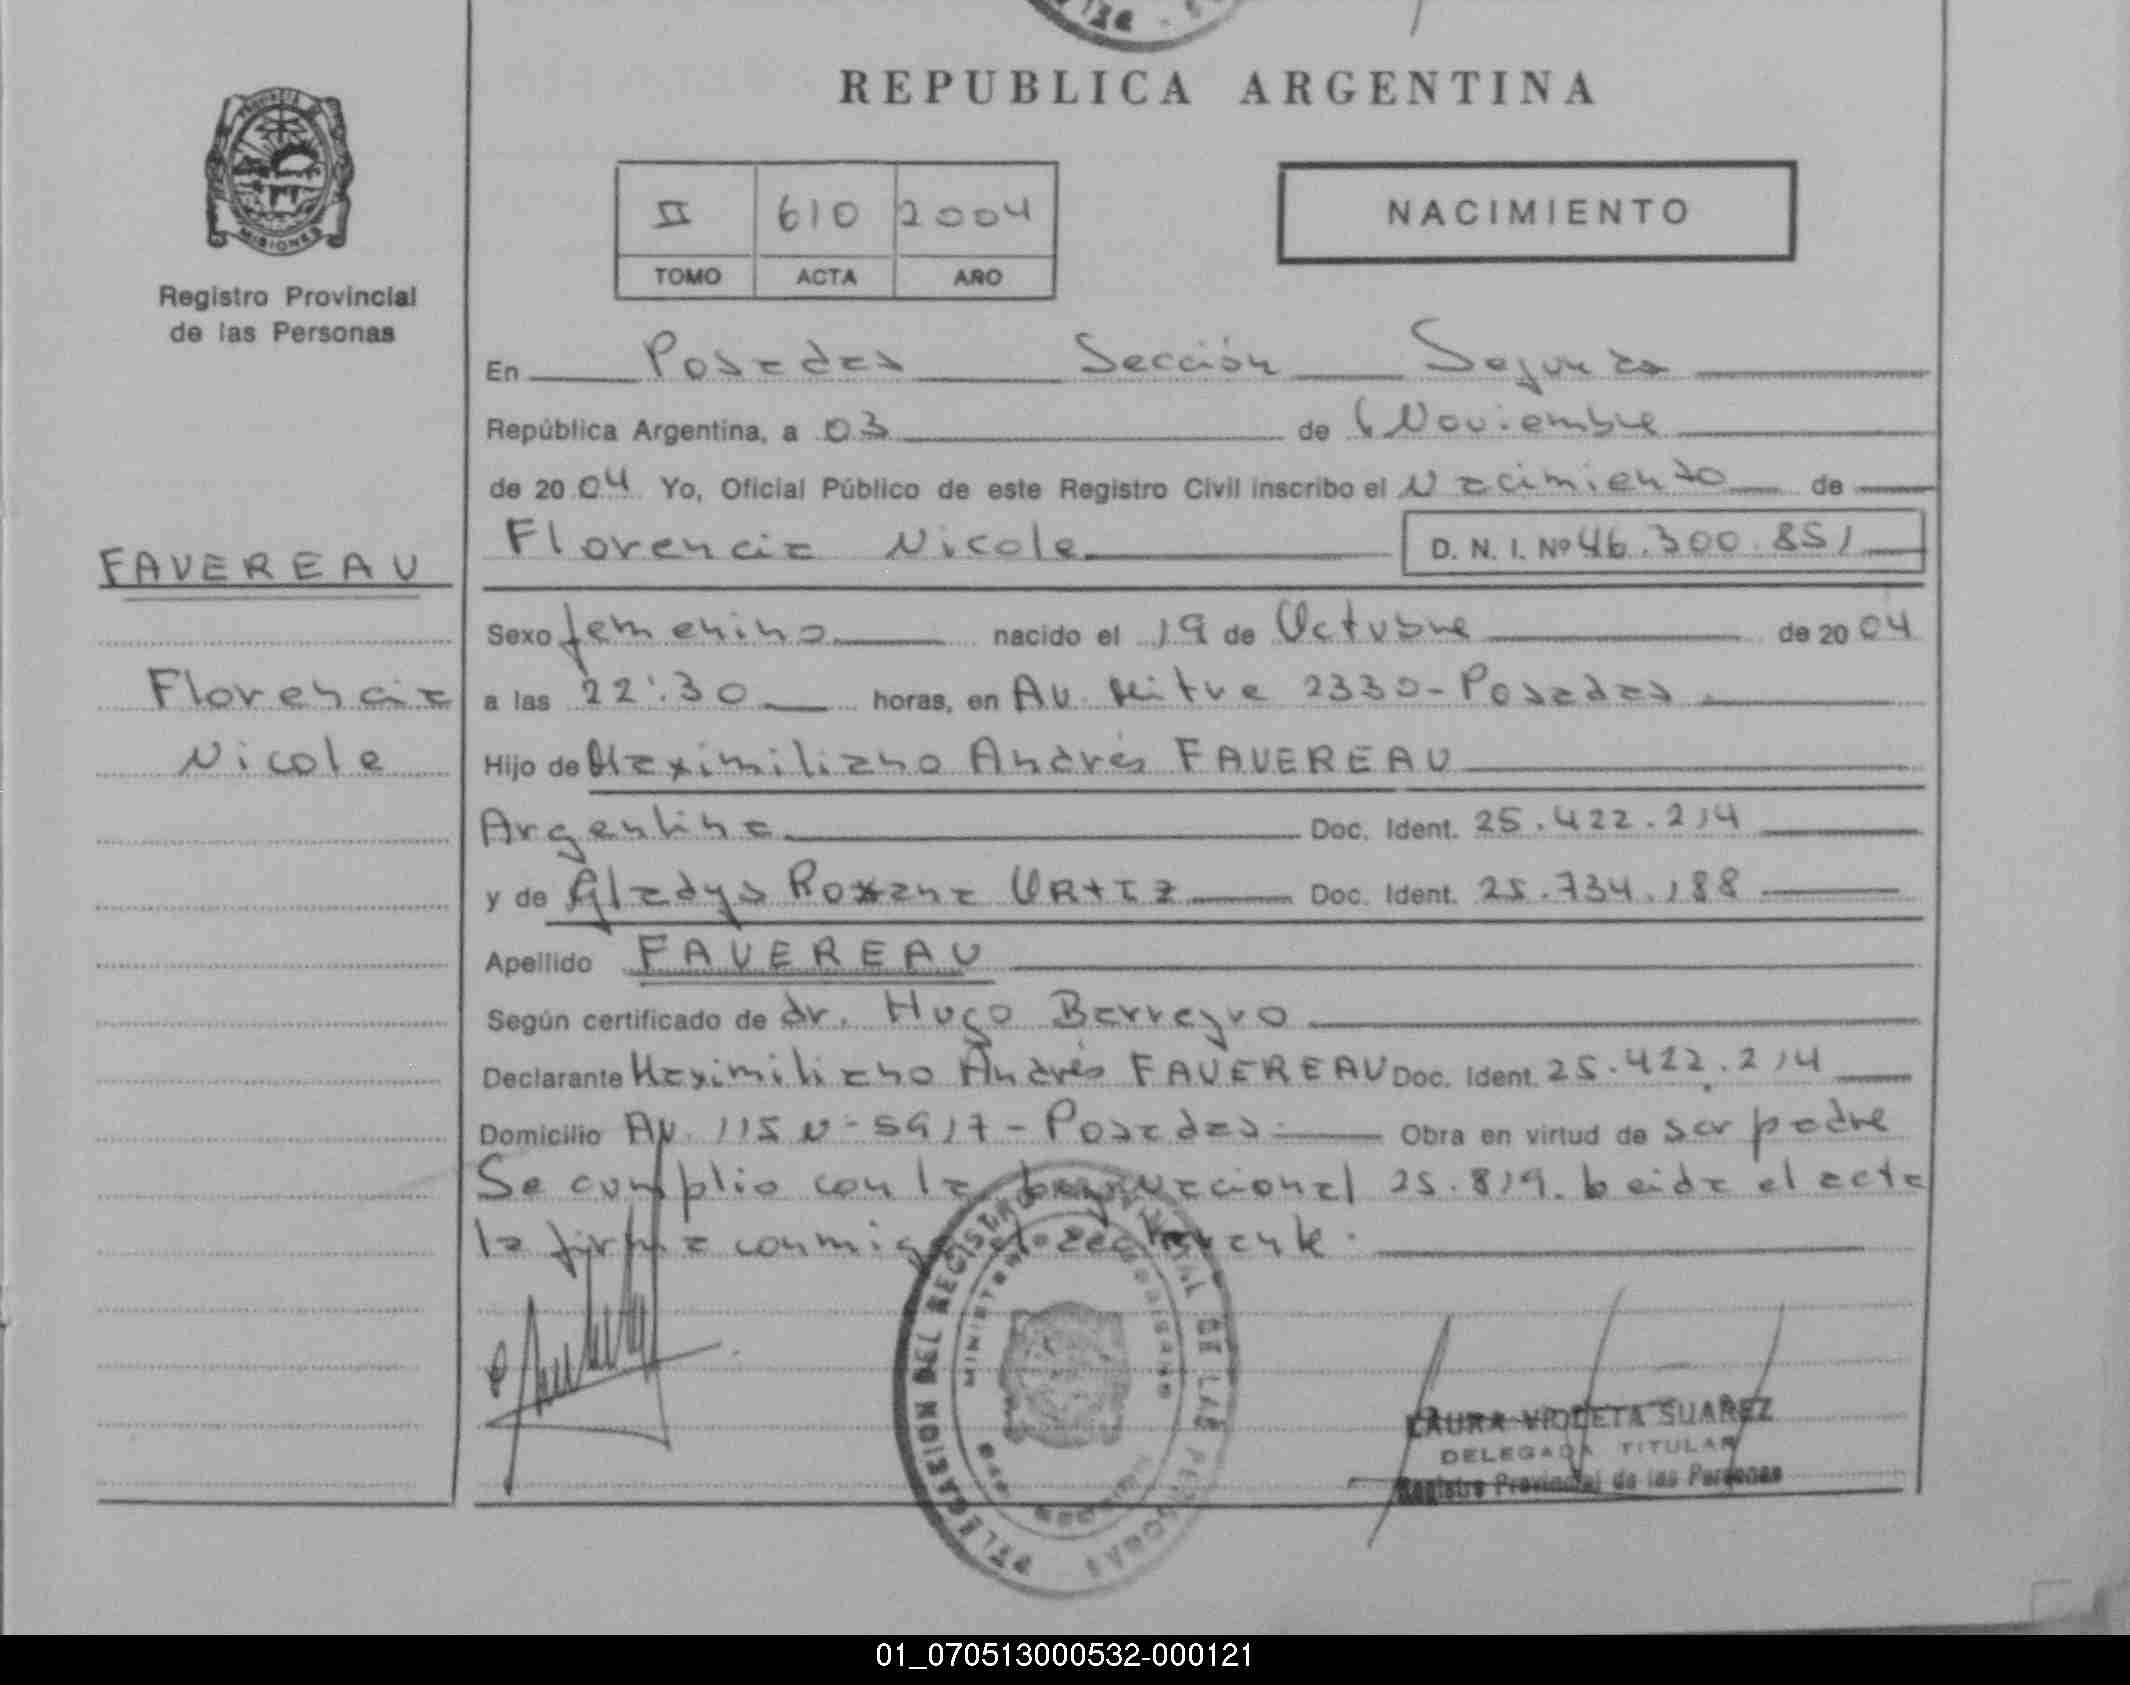 REPUBLICA ARGENTINA
MISIONES
Registro Provincial
de las Personas
II 610 2004
TOMO ACTA AÑO
NACIMIENTO
En Posadas Sección Segunda
República Argentina, a 03 de Noviembre
de 2004 Yo, Oficial Público de este Registro Civil inscribo el Nacimiento de
Florencia Nicole D. N. I. Nº 46.300.851
FAVEREAU
Florencia
Nicole
Sexo femenino nacido el 19 de Octubre de 2004
a las 22:30 horas, en Av. Mitre 2330 - Posadas
Hijo de Maximiliano Andrés FAVEREAU
Argentina Doc. Ident. 25.422.214
y de Gladys Roxana ORTIZ Doc. Ident. 25.734.188
Apellido FAVEREAU
Según certificado de dr. Hugo Barreyro
Declarante Maximiliano Andrés FAVEREAU Doc. Ident. 25.422.214
Domicilio Av. 115 N-5917 - Posadas Obra en virtud de ser padre
Se cumplio con la nacional 25.819. Leida el acta
la firma conmigo el declarante.
DELEGACION DEL REGISTRO PROVINCIAL DE LAS PERSONAS
MINISTERIO DE GOBIERNO
MISIONES
LAURA VIOLETA SUAREZ
DELEGADA TITULAR
Registro Provincial de las Personas
01_070513000532-000121